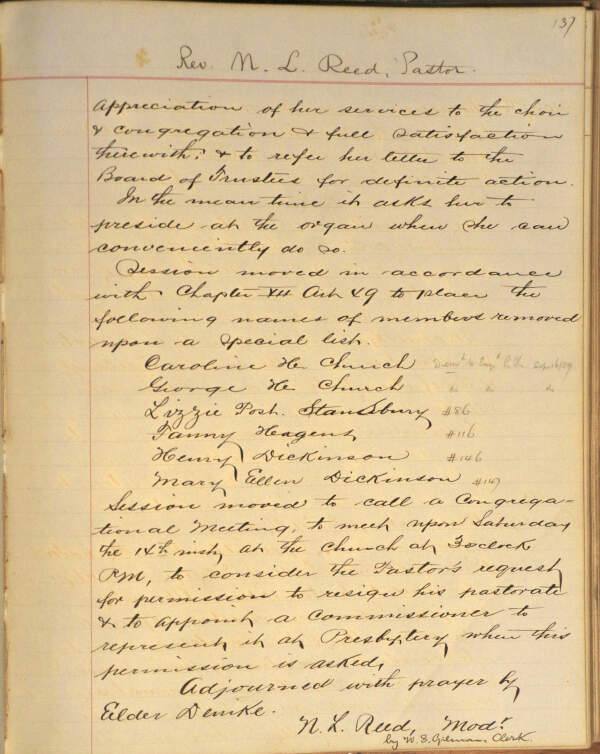 137
Rev. N. L. Reed, Pastor.
appreciation of her services to the choir
& congregation & full satisfaction
therewith; & to refer her letter to the
Board of Trustees for definite action.
In the mean time it asks her to
preside at the organ when she can
conveniently do so.
Session moved in accordance
with Chapter XII Art 49 to place the
following names of members removed
upon a special list.
Caroline H. Church
George H. Church " " "
Lizzie Post. Stansbury #86
Fanny #116
Henry Dickinson #146
Mary Ellen Dickinson #147
Session moved to call a Congrega-
tional Meeting, to meet upon Saturday
the 14th inst, at the church at 3 oclock
PM, to consider the Pastor's request
for permission to resign his pastorate
& to appoint a Commissioner to
represent it at Presbytery when this
permission is asked,
Adjourned with prayer by
Elder Demke.
N. L. Reed, Modr.
by W. S. Gilman, Clerk